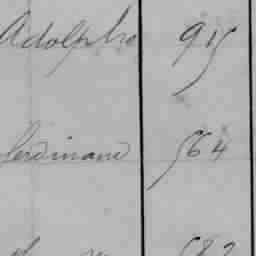 Adolpho 915
Ferdinand 564